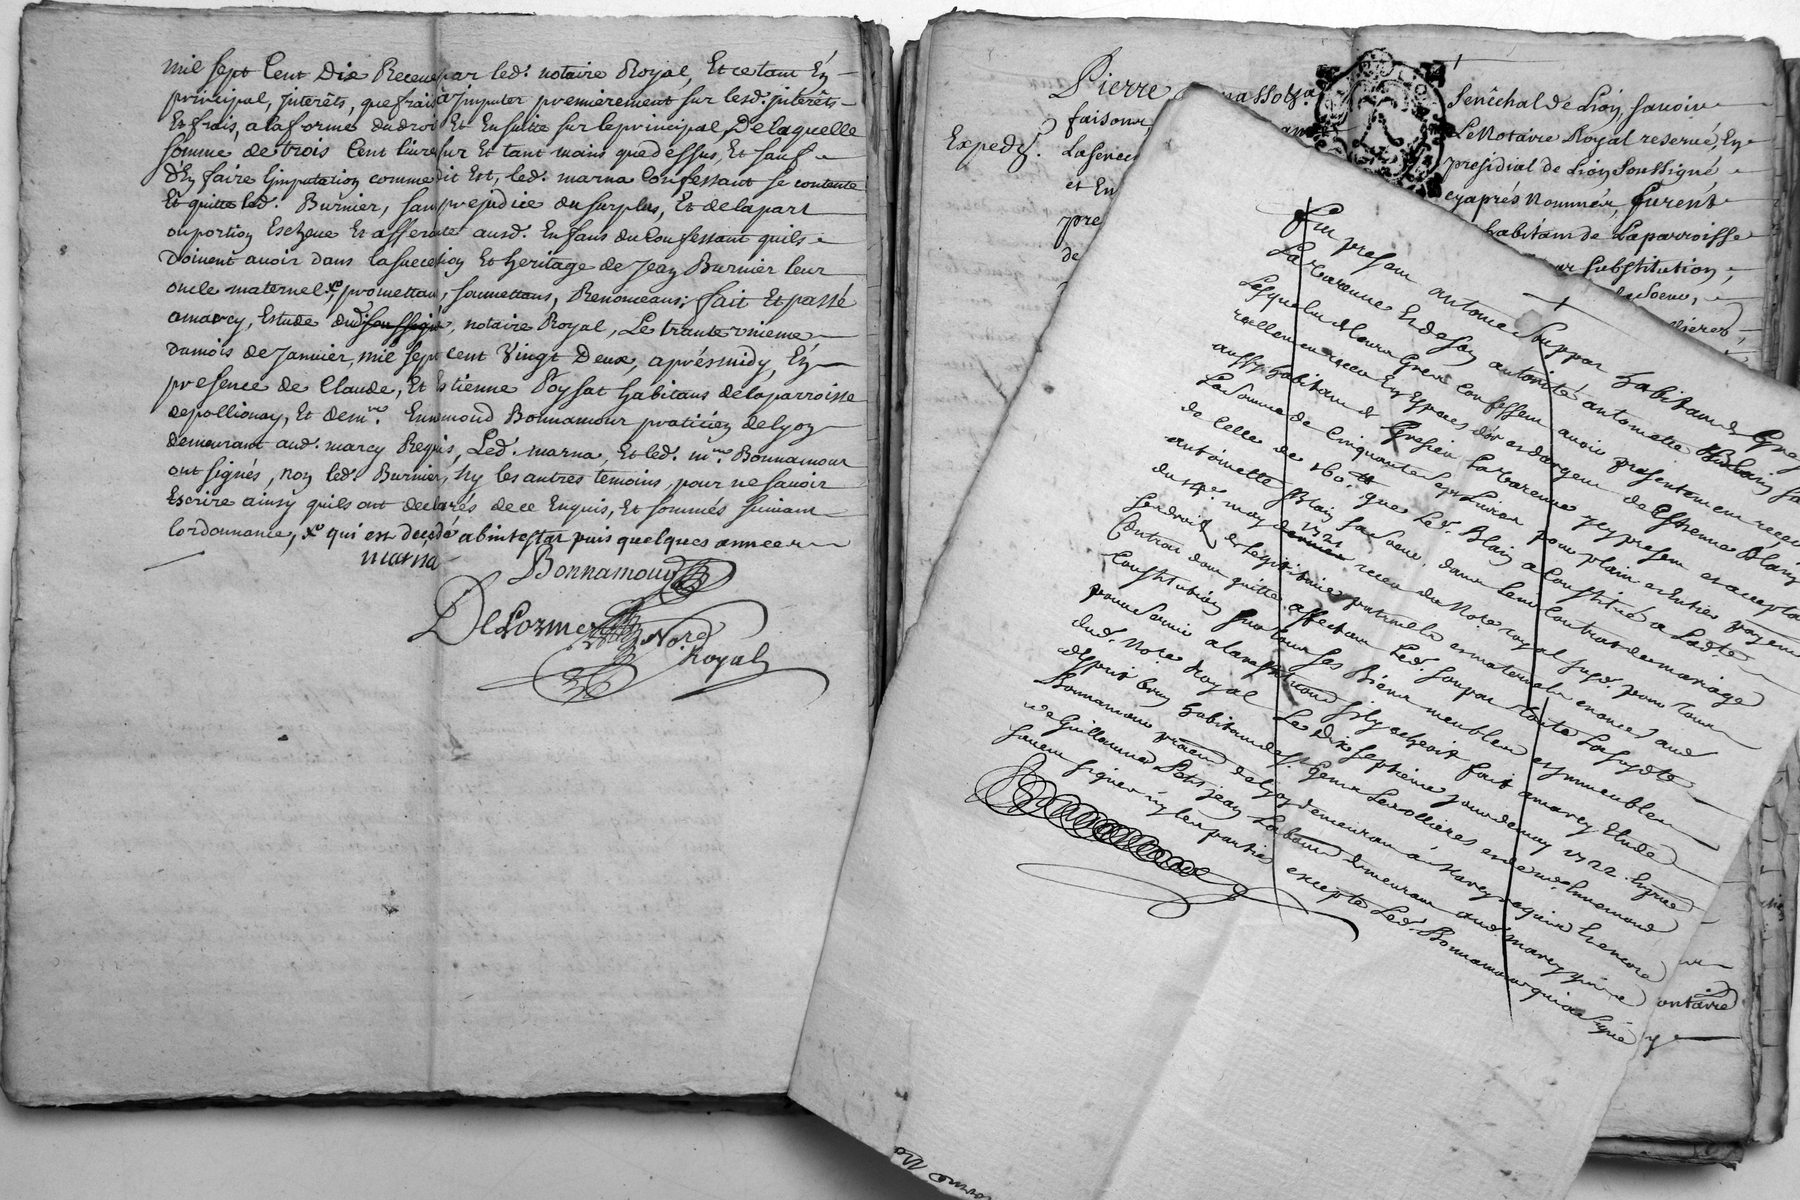 mil sept Cent Dix Receue par led. notaire Royal, Et ce tant En
principal, jnterêts, que frais a jmputer premierement sur lesd. jnterêts
Et frais, a la forme du droit Et En suitte sur le principal De laquelle
somme de trois Cent livres sur Et tant moins que dessus, Et sauf
d'En faire L'jmputation comme dit Est, led. marna Confessant se contente
Et quitte led. Burnier, sans prejudice du surplus, Et de la part
ou portion Escheue Et afferante ausd. Enfans du Confessant quils
Doivent avoir dans la succession Et heritage de Jean Burnier leur
oncle maternel, promettans, soumettans, Renonceans; fait Et passé
a marcy, Estude dud. soussigné, notaire Royal, Le trante unieme
du mois de Janvier, mil sept cent Vingt Deux, aprés midy, En
presence de Claude, Et Estienne Poysat habitans de la parroisse
de pollionay, Et de mre. Ennemond Bonnamour praticien de Lyon
demeurant aud. marcy Requis, Led. marna, Et led. mre. Bonnamour
ont signés, non led. Burnier, Ny les autres temoins, pour ne savoir
Escrire ainsy quils ont declarés de ce Enquis, Et sommés suivant
lordonnance, qui est decedé abintestat puis quelques années
marna
Bonnamour
DeLorme Nore.
Royal
Pierre
faisons,
Expedé.
La senec
et En
pre
de
Senêchal de Lion, savoir
Le Notaire Royal reservé, En
presidial de Lion soussigné
cy aprés Nommés, furent
habitans de La parroisse
par substitution,
Fut present antoine Souppat habitant de Gresieu
La Varenne Et de son autorité antoinette Blain sa
Lesquels de leurs Grez Confessent avoir presentement receu
reellement receu En Especes d'or et d'argent de Estienne Blain
aussy habitant de Gresieu La Varenne jcy present et acceptant
La somme de Cinquante sept Livres pour plain et Entier payement
de Celle de 160.# que Led. Blain a Constitué a Ladte.
antoinette Blain sa soeur dans leur Contrat de mariage
du 14e. may dernier 1721 receu du Notre royal susd. pour tous
Les droits de Legitime paternels et maternels enoncés aud.
Contrat dont quitte affectant Led. soupat toute La susdte.
Constitution sur tous ses Biens meubles et jmmeubles
pour servir a la restitution sil y echeoit fait a marcy Etude
dud. Note. Royal Le dix septieme jour de may 1722. En pnce
d'Esprit brun habitant de St. Genis Les ollieres et de mre. Ennemond
Bonnamour praticien de Lyon demeurant a marcy requis Et encore
de Guillaume Petit jean Laboureur demeurant aud. marcy
savoir signer ny les parties excepté Led. Bonnamour qui a signé
Bonnamour
ontaire